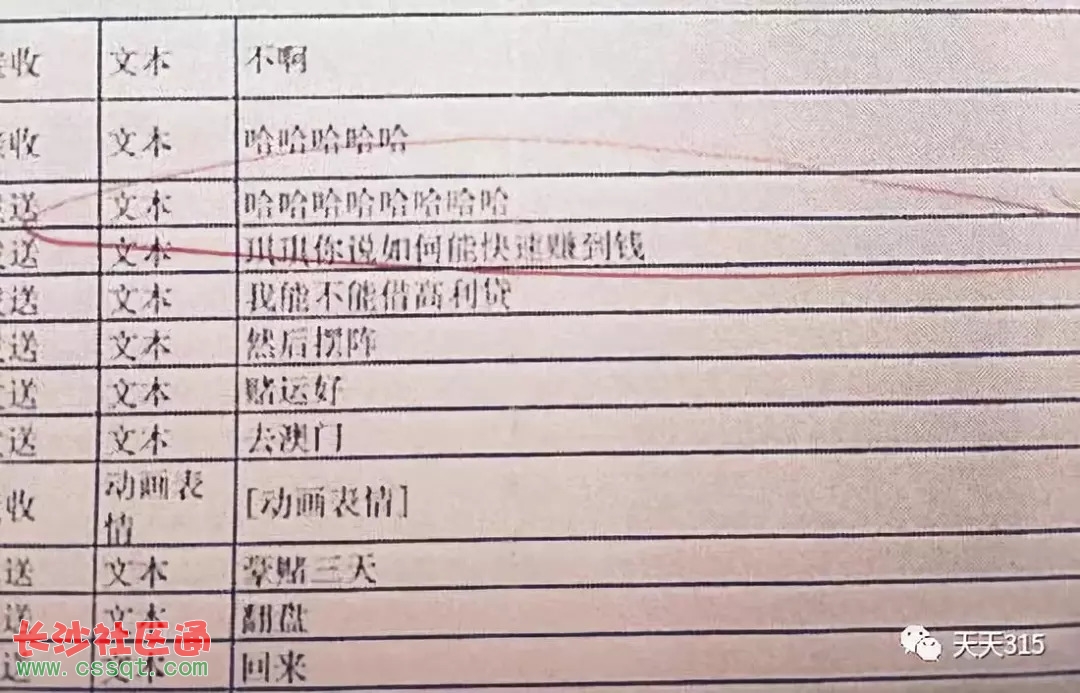 收 文本 不啊
收 文本 哈哈哈哈哈
送 文本 哈哈哈哈哈哈哈哈
送 文本 琪琪你说如何能快速赚到钱
送 文本 我能不能借高利贷
送 文本 然后摆阵
送 文本 赌运好
送 文本 去澳门
收 动画表情 [动画表情]
送 文本 豪赌三天
送 文本 翻盘
送 文本 回来
长沙社区通
www.cssqt.com
天天315